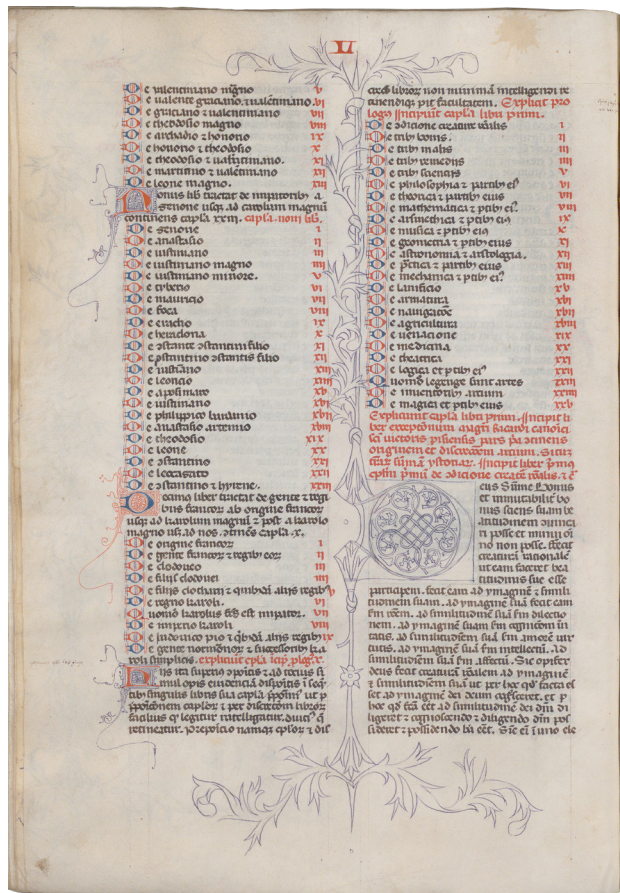 LI
De valentiniano magno v
De valente graciano. & ualentiniano. vi
De graciano & ualentiniano vii
De theodosio magno viii
De archadio & honorio ix
De honorio & theodosio x
De theodosio & valentiniano. xi
De martiano & ualentiniano xii
De leone magno. xiii
Nonus lib̃ tractat de imp̃atorib; a
zenone usq; ad carolum magnũ
continens capl̃a xxiii. capl̃a noni lib̃.
De zenone i
De anastasio ii
De iustiniano iii
De iustiniano magno iiii
De iustiniano minore. v
De tyberio vi
De mauricio vii
De foca viii
De eracho ix
De heraclona x
De ɔstante ɔstantini filio xi
De ɔstantino ɔstantis filio xii
De iustĩano xiii
De leoncio xiiii
De apsimaro xv
De iustiniano xvi
De philippico bardanio xvii
De anastasio artemio xviii
De theodosio xix
De leone xx
De ɔstantino xxi
De leone xxii
De ɔstantino & hyrene. xxiii
Decimus liber tractat de gente & regi
bus francoꝝ ab origine francoꝝ
usq; ad karolum magnũ & post a karolo
magno usq; ad nos. ɔtinẽs capl̃a. x.
De origine francoꝝ i
De gente francoꝝ & regib; eoꝝ ii
De clodoueo iii
De filiis clodouei iiii
De filiis clotharii & quibusdã aliis regib; v
De regno karoli. vi
Quomõ karolus fc̃s est imp̃ator. vii
De imperio karoli viii
De ludouico pio & q̃busdã aliis regib; ix
De gente normẽnoꝝ & successorib; ka
roli simplicis. explic̃iut cpl̃a x.
His ita
b; singulis libris sua capl̃a p̃posim; ut p
p̃positionem capl̃oꝝ & per discretionem libroꝝ
facilius q̃ legitur intelligatur. q̃
retineatur. p̃opositio namq; cpl̃oꝝ & dis
cretio libroꝝ non minimã intelligendi re
tinendiq; p̃stat facultatem. Explicit pro
logus incipiunt capl̃a libri primi.
De ɔditione creature rõnalis i
De trib; bonis. ii
De trib; malis iii
De trib; remediis iiii
De trib; scienciis v
De philosophia & partib; ei; vi
De theorica & partib; eius vii
De mathematica & p̃tib; ei; viii
De arismetica & p̃tib; ei; ix
De musica & p̃tib; ei; x
De geometria & p̃tib; eius xi
De astronomia & astrologia. xii
De p̃ctica & partib; eius xiii
De mechanica & p̃tib; ei; xiiii
De lanificio xv
De armatura xvi
De nauigatiõe xvii
De agricultura xviii
De uenacione xix
De medicina xx
De theatrica xxi
De logica et p̃tib; ei; xxii
Quomõ legende sunt artes xxiii
De inuentorib; artium xxiiii
De magica et p̃tib; eius xxv
Expliciunt capl̃a libri primi. Incipit li
ber exceptionum magr̃i Ricardi canonici
sc̃i uictoris p̃isiensis pars p̃a ɔtinens
originem et discretionem artium.
Incipit liber p̃mus
cpl̃m p̃mũ de ɔditione creature rõnalis.
Deus sũme bonus
et immutabilis bo
nus sciens suam be
atitudinem
ri posse et minui oĩ
no non posse. fecit
creaturã rationalẽ
ut eam faceret bea
titudinis sue esse
participem. fecit eam ad ymaginẽ & simili
tudinem suam. ad ymaginẽ suã fecit eam
s̃m rõem. ad similitudinẽ suã s̃m dilectio
nem. ad ymaginẽ suam s̃m cognicionẽ ue
ritatis. ad similitudinẽ suã s̃m amorẽ uir
tutis. ad ymaginẽ suã s̃m intellectũ. ad
similitudinẽ suã s̃m affectũ. Sic opifex
deus fecit creaturã rõnalem ad ymaginẽ
& similitudinẽ suã ut per hoc qđ facta es
set ad ymaginẽ dei deum cognosceret. et p̃
hoc qđ fc̃a eẽt ad similitudinẽ dei dm̃ di
ligeret & cognoscendo & diligendo dm̃ pos
sideret & possidendo bñ eẽt. Sic eĩ i uno ele